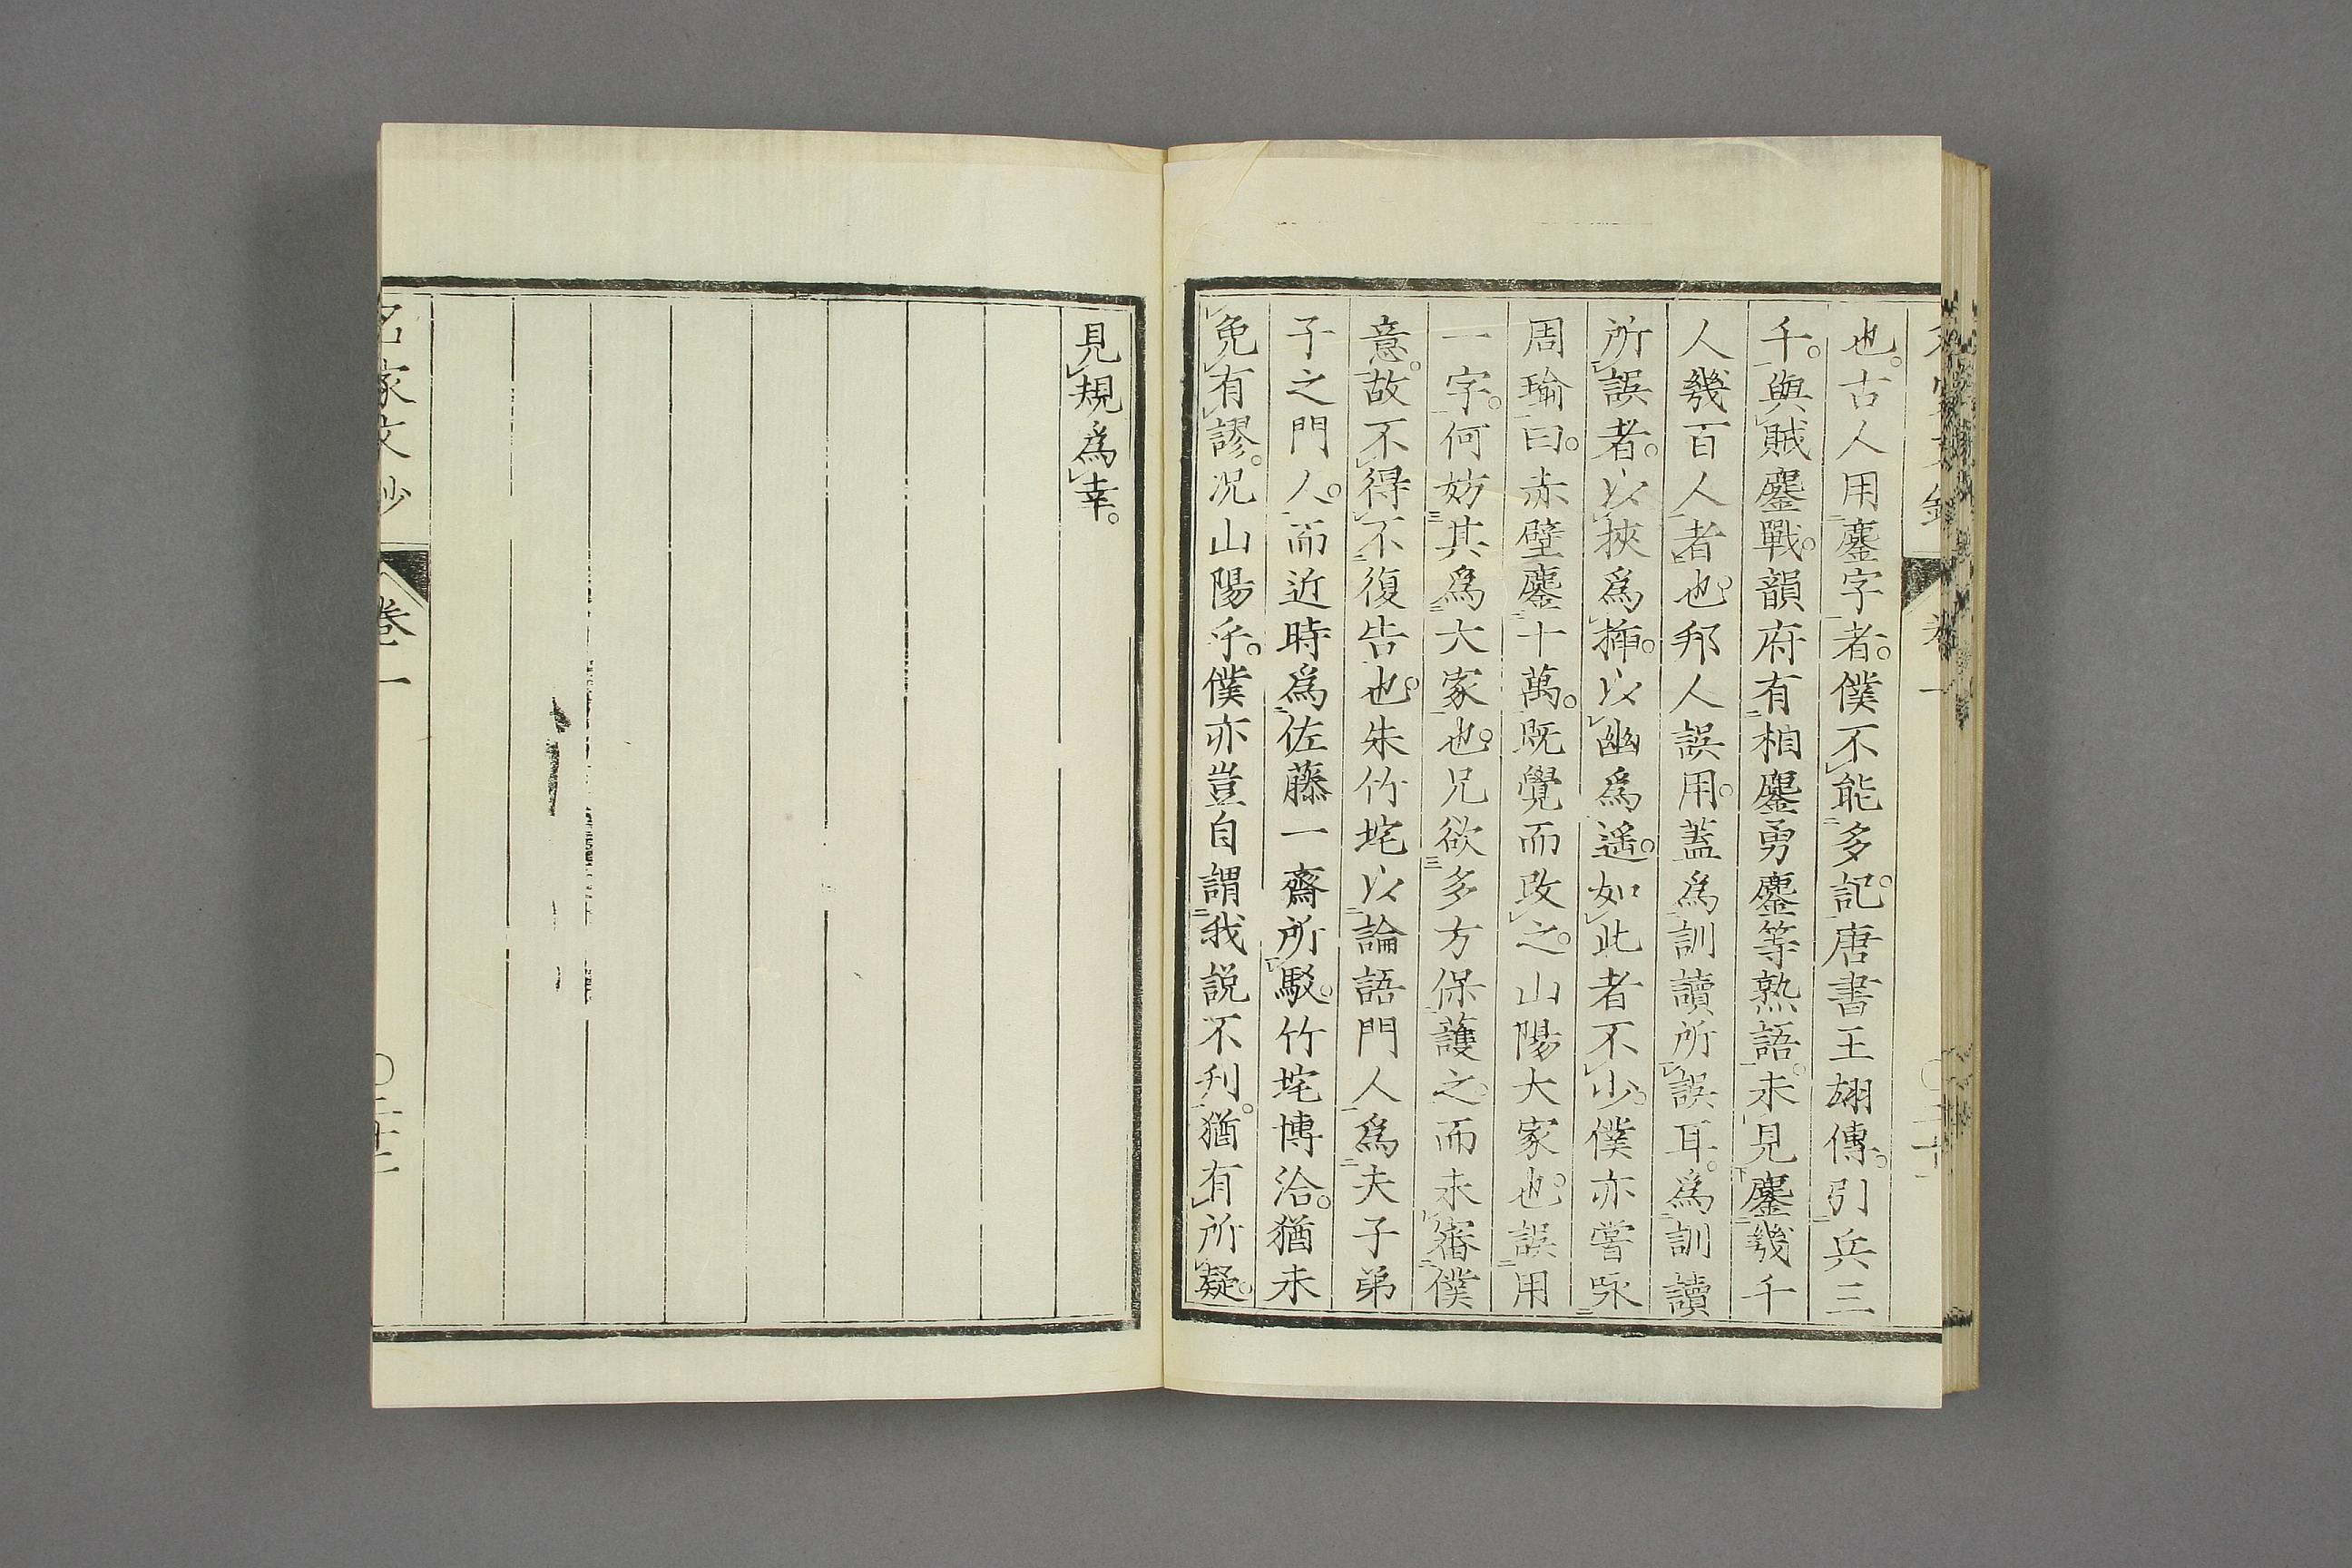 也。古人用鏖字者。僕不能多記。唐書王翃傳。引兵三
千。與賊鏖戰。韻府有相鏖勇鏖等熟語。未見鏖幾千
人幾百人者也。邦人誤用。蓋爲訓讀所誤耳。爲訓讀
所誤者。以挾爲揷。以幽爲遥。如此者不少。僕亦嘗咏
周瑜曰。赤壁鏖十萬。既覺而改之。山陽大家也。誤用
一字。何妨其爲大家也。兄欲多方保護之。而未審僕
意。故不得不復告也。朱竹垞以論語門人爲夫子弟
子之門人。而近時爲佐藤一齋所駁。竹垞博洽。猶未
免有謬。况山陽乎。僕亦豈自謂我説不刋。猶有所疑。
見規爲幸。
名家文抄 卷一 〇二十二